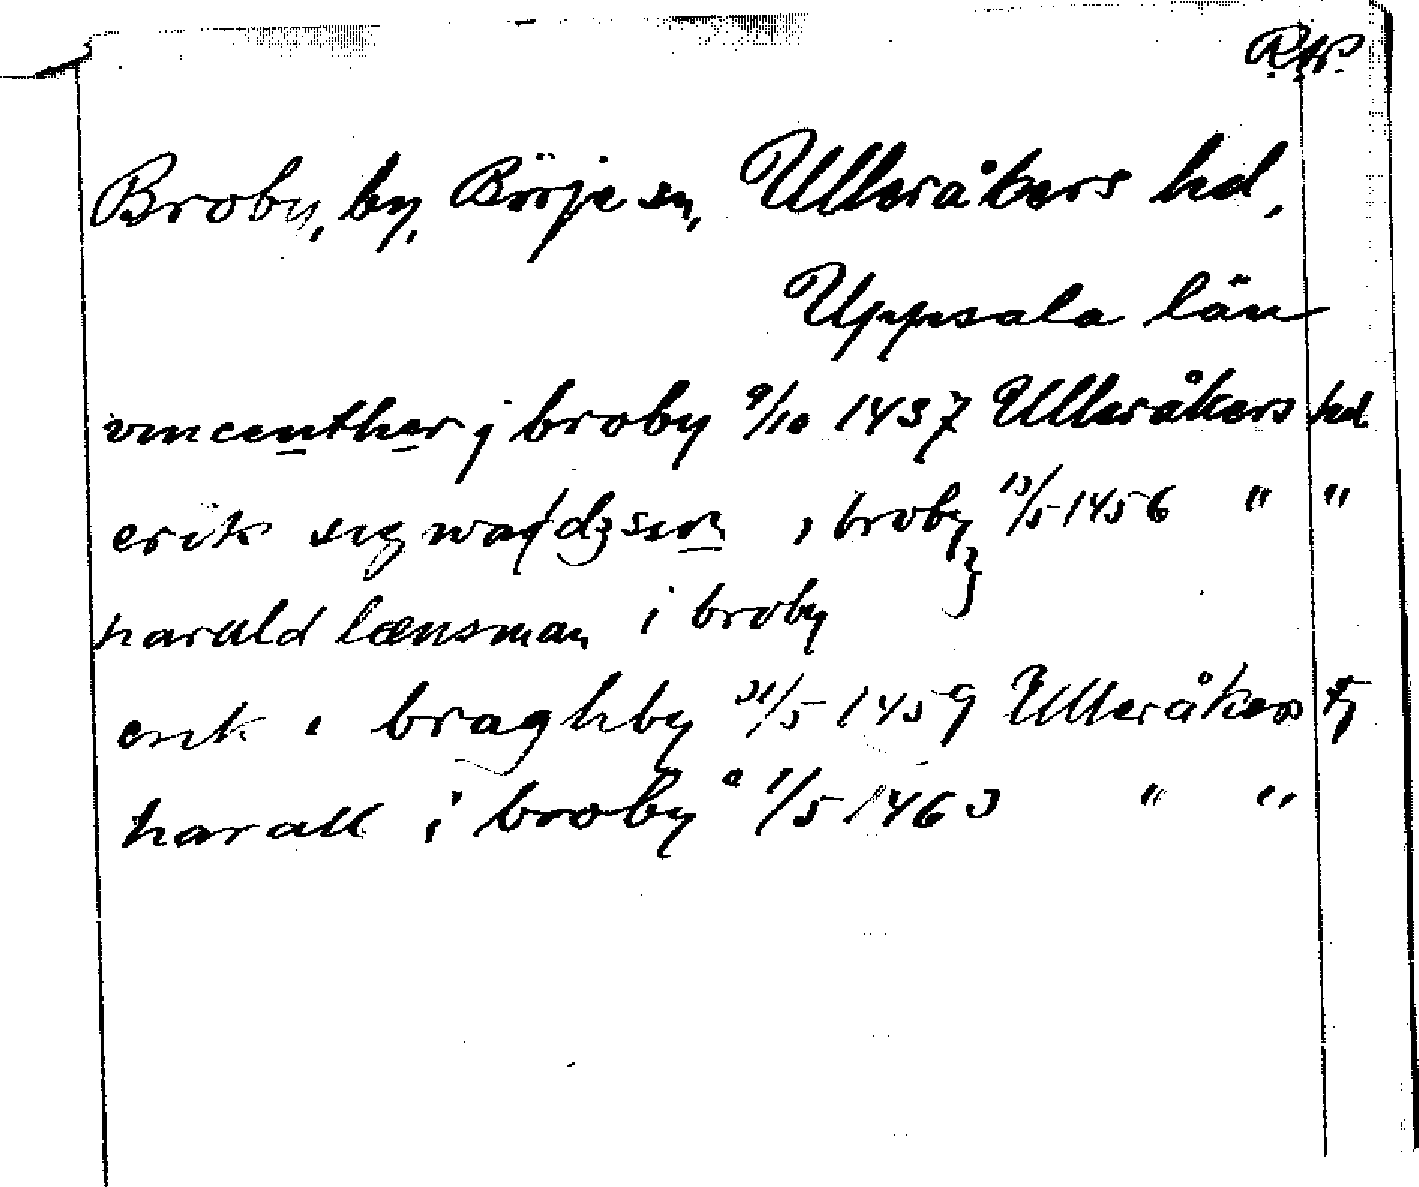 Broby, by, Börje sn, Ulleråkers hd,
Uppsala län
vincenther j broby 9/10 1437 Ulleråkers hd
erik sigwaldzson i broby 13/5 1456 " "
harald lænsman i broby }
erik i braghby 31/5 1459 Ulleråkers tg
harall i broby 1/5 1463 " "